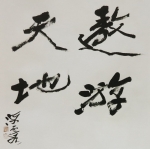 遨游
天地